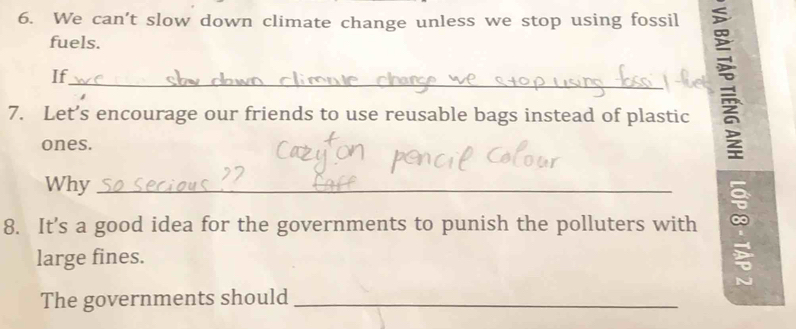 6. We can't slow down climate change unless we stop using fossil
fuels.
If we slow down climate change we stop using fossil
7. Let's encourage our friends to use reusable bags instead of plastic
ones.
cazyton pencil colour
Why so serious ??
8. It's a good idea for the governments to punish the polluters with
large fines.
The governments should
VÀ BÀI TẬP TIẾNG ANH LỚP 8 - TẬP 2